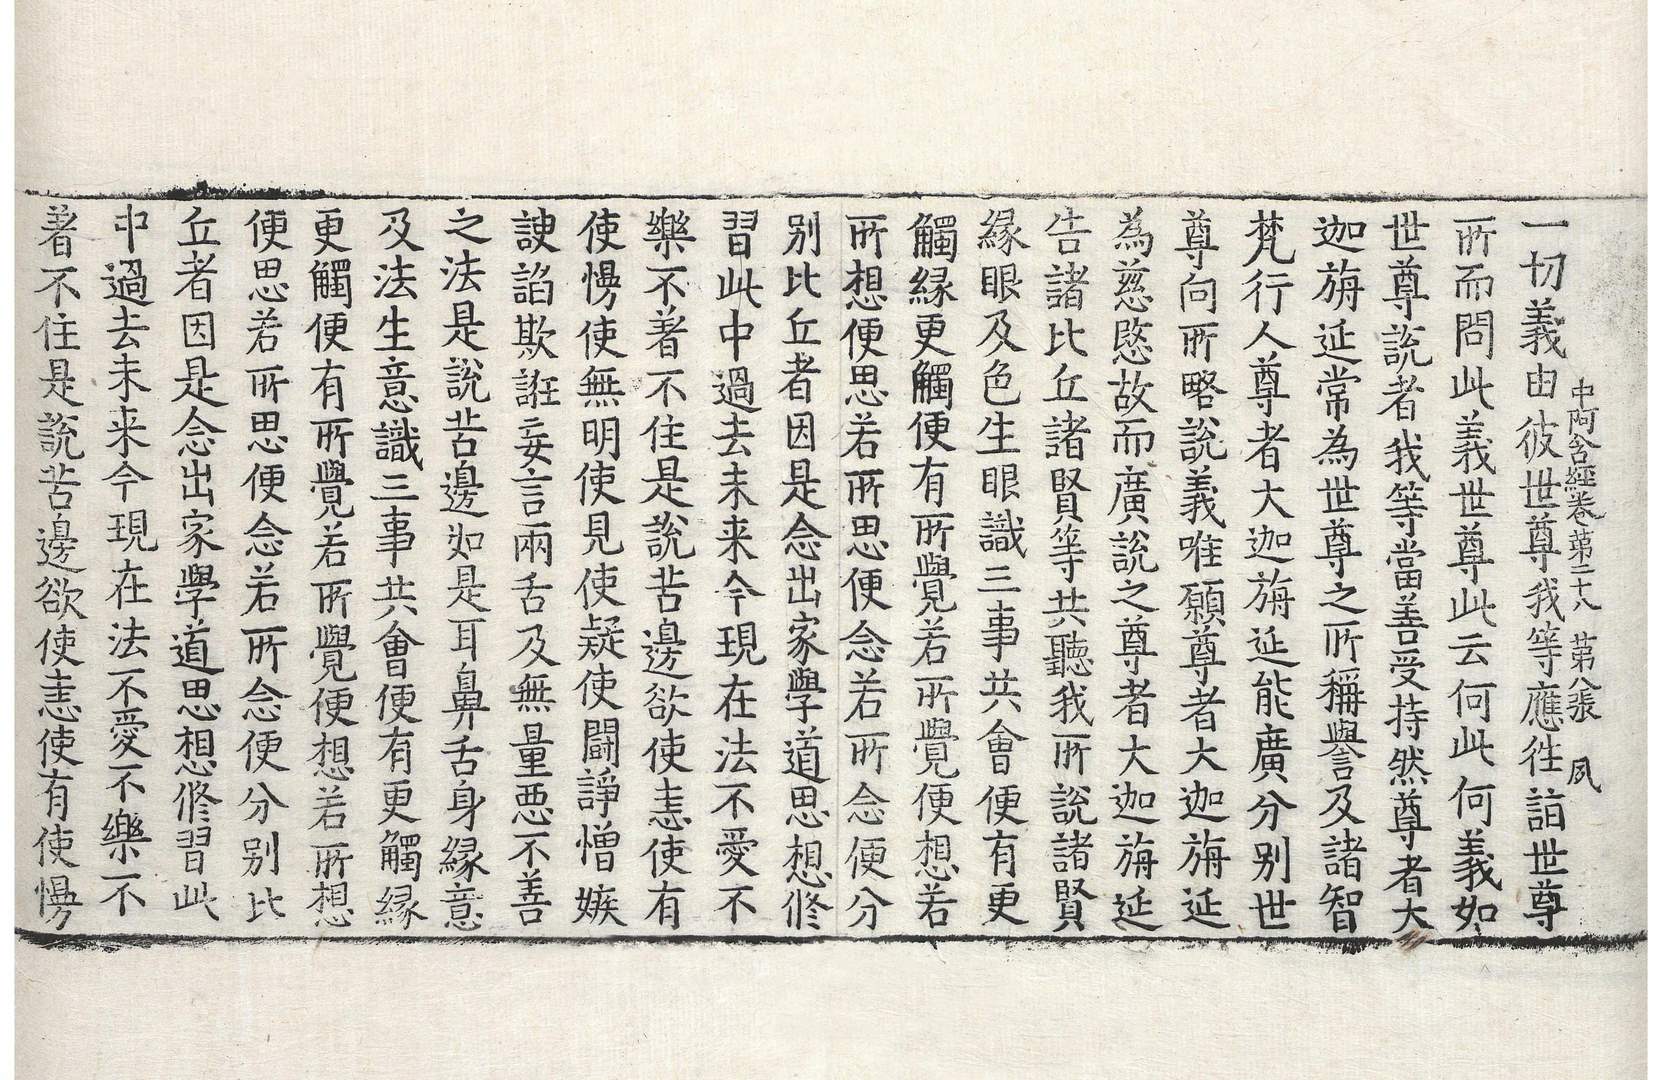 中阿含經卷第二十八　第八張　夙
一切義由彼世尊我等應徃詣世尊
所而問此義世尊此云何此何義如
世尊說者我等當善受持然尊者大
迦旃延常為世尊之所稱譽及諸智
梵行人尊者大迦旃延能廣分別世
尊向所略說義唯願尊者大迦旃延
為慈愍故而廣說之尊者大迦旃延
告諸比丘諸賢等共聽我所說諸賢
緣眼及色生眼識三事共會便有更
觸緣更觸便有所覺若所覺便想若
所想便思若所思便念若所念便分
別比丘者因是念出家學道思想修
習此中過去未来今現在法不愛不
樂不著不住是說苦邊欲使恚使有
使慢使無明使見使疑使鬪諍憎嫉
諛諂欺誑妄言兩舌及無量惡不善
之法是說苦邊如是耳鼻舌身緣意
及法生意識三事共會便有更觸緣
更觸便有所覺若所覺便想若所想
便思若所思便念若所念便分別比
丘者因是念出家學道思想修習此
中過去未来今現在法不愛不樂不
著不住是說苦邊欲使恚使有使慢